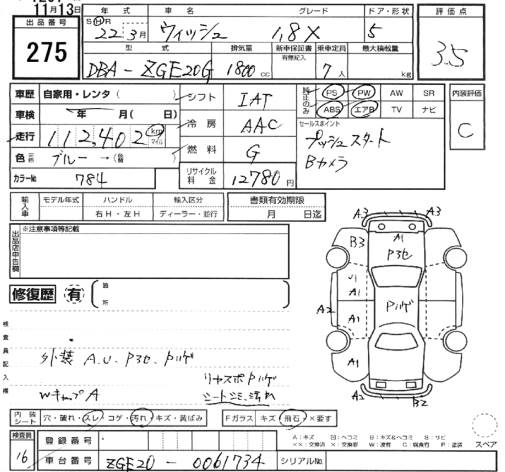 11月13日
出品番号
275
年式 車名 グレード ドア・形状
S H R 22年3月 ウィッシュ 1.8X 5
型式 排気量 新車保証書 有無記入 乗車定員 最大積載量
DBA-ZGE20G 1800cc 7人 kg
評価点
3.5
車歴 自家用・レンタ( )
車検 年 月( )日
走行 112,402 km マイル
色 ブルー→( )
カラーNo 784
シフト IAT
冷房 AAC
燃料 G
リサイクル料金 12780円
純正のみ
PS PW AW SR
ABS エアB TV ナビ
セールスポイント
プッシュスタート
Bカメラ
内装評価
C
輸入車 モデル年式 ハンドル 右H・左H 輸入区分 ディーラー・並行
書類有効期限
月 日迄
出品店申告欄
※注意事項等記載
修復歴 有 箇所
検査員記入欄
外装 A.U. Pｽﾚ Pﾊｹﾞ
WキップA
リヤスポPﾊｹﾞ
シートシミ、汚れ
A3 A3
A1
B3
A1
A2
A1
Pﾊｹﾞ
A3
A2 B2
内装シート 穴・破れ・スレ コゲ・汚れ・キズ・黄ばみ Fガラス キズ・飛石・×要す
A:キズ U:ヘコミ B:キズ&ヘコミ S:サビ
××:交換済 ×:交換要 W:波有 C:腐食有 P:塗装
スペア
検査員
16
登録番号
車台番号 ZGE20-0061734 シリアルNo.